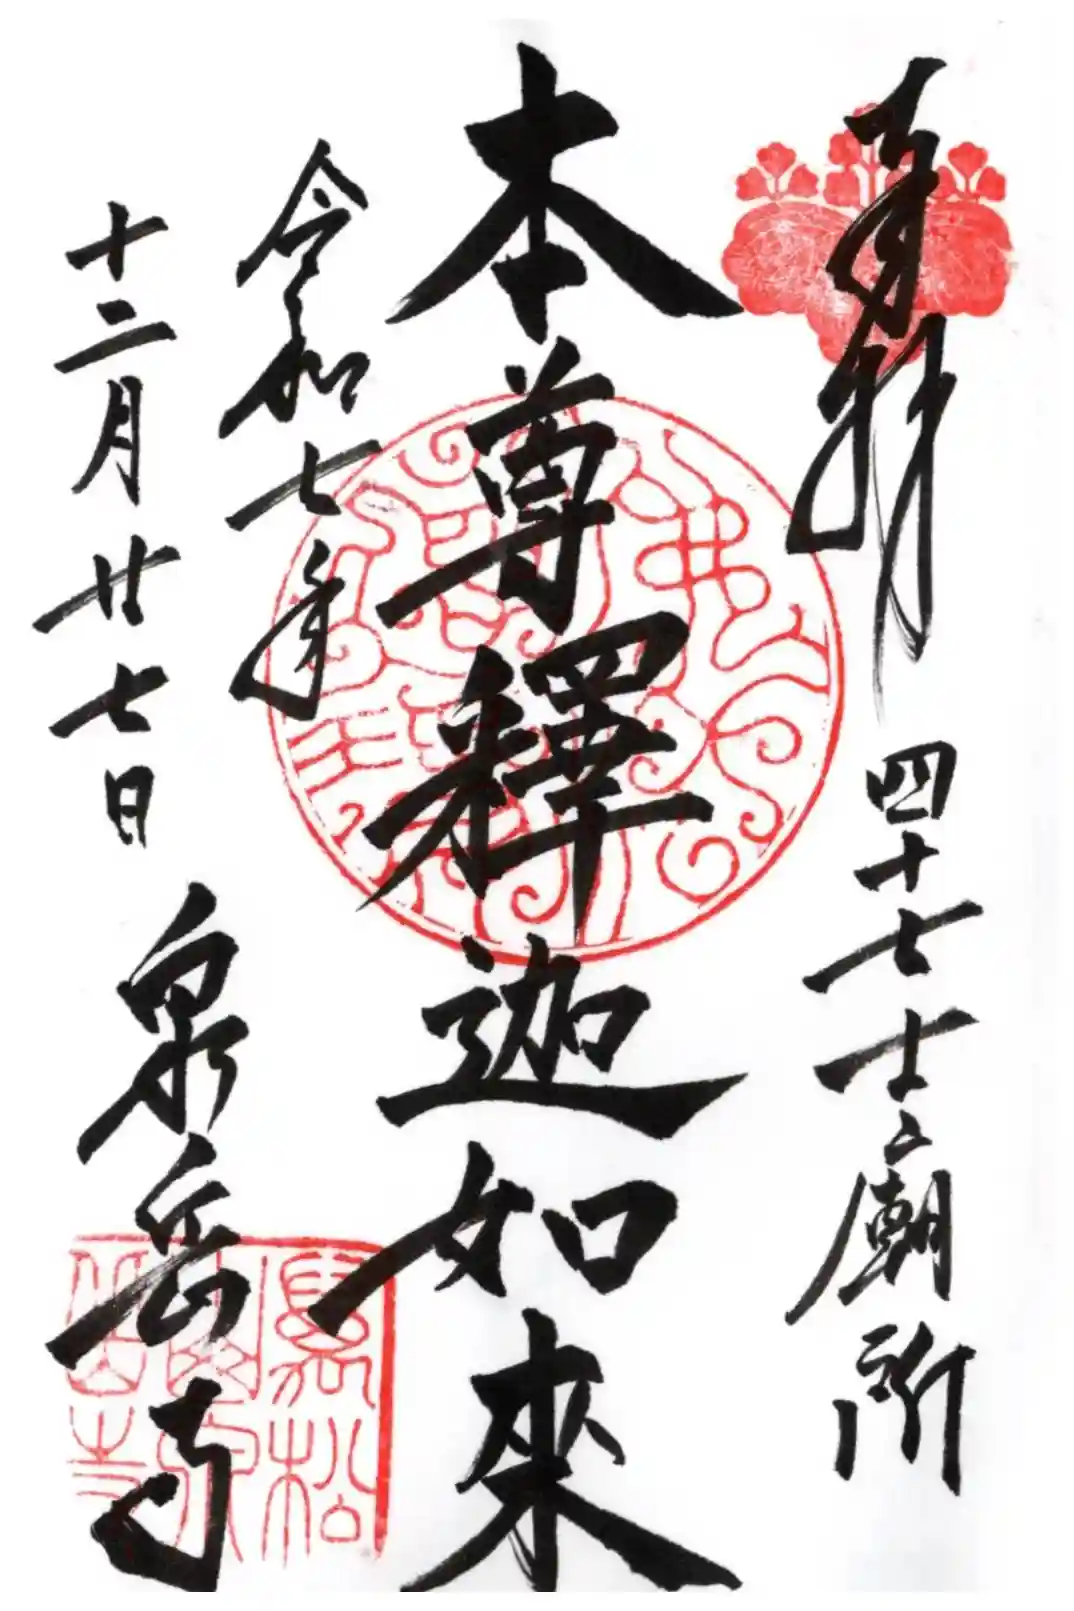 奉拝
四十七士廟所
本尊釋迦如來
令和七年
十二月廿七日
泉岳寺